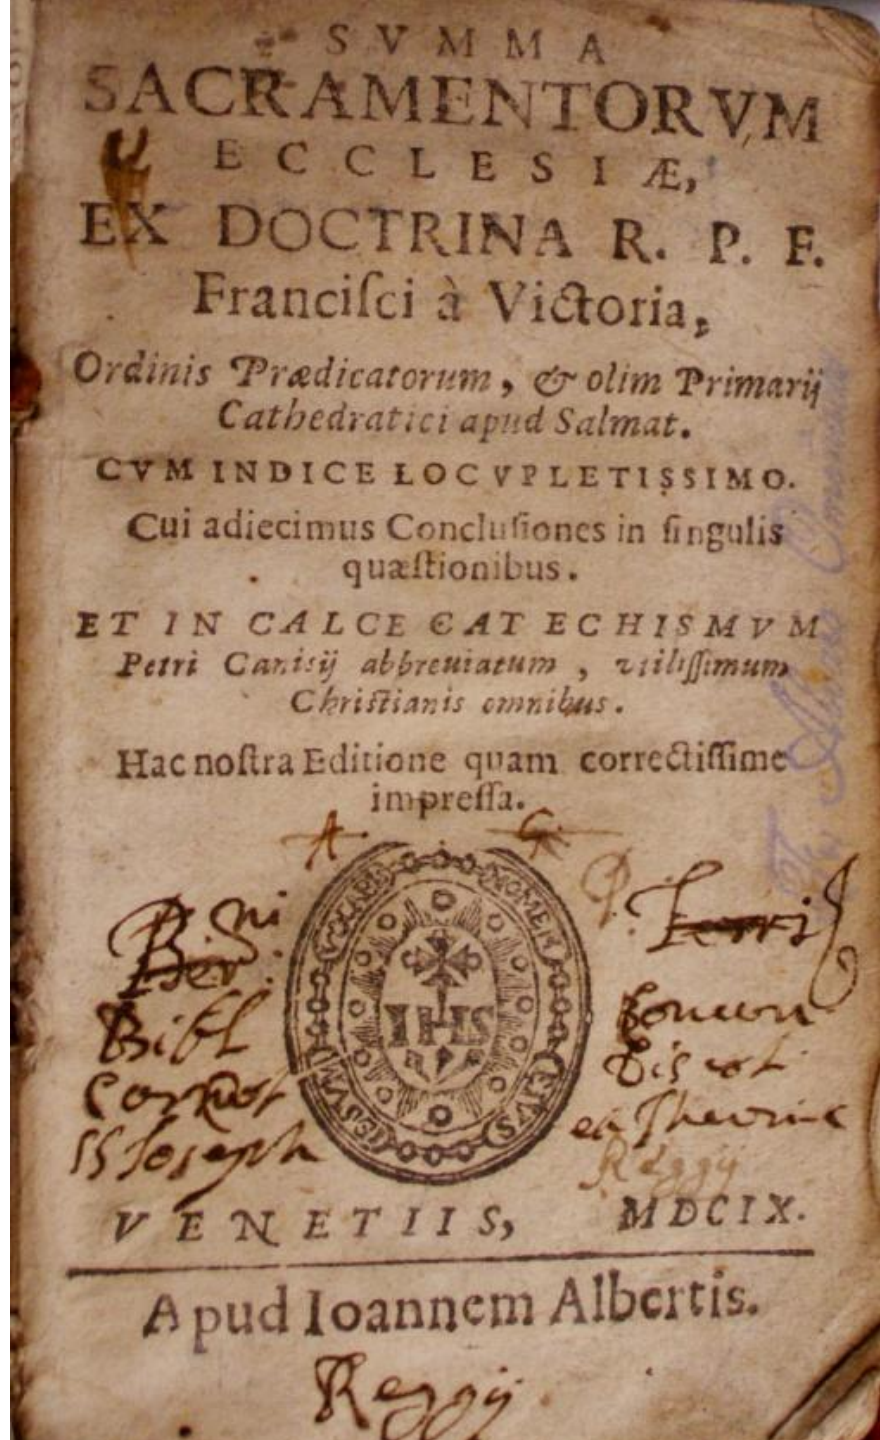 SVMMA
SACRAMENTORVM
ECCLESIÆ,
EX DOCTRINA R. P. F.
Franciſci à Victoria,
Ordinis Prædicatorum, & olim Primarij
Cathedratici apud Salmat.
CVM INDICE LOCVPLETISSIMO.
Cui adiecimus Concluſiones in ſingulis
quæſtionibus.
ET IN CALCE CATECHISMVM
Petri Canisij abbreuiatum, vtiliſſimum
Chriſtianis omnibus.
Hac noſtra Editione quam correctiſſime
impreſſa.
A G
VOCABIS NOMEN EIVS IESVM
IHS
Bibl
SS Joseph
Reggij
VENETIIS, MDCIX.
Apud Ioannem Albertis.
Reggij